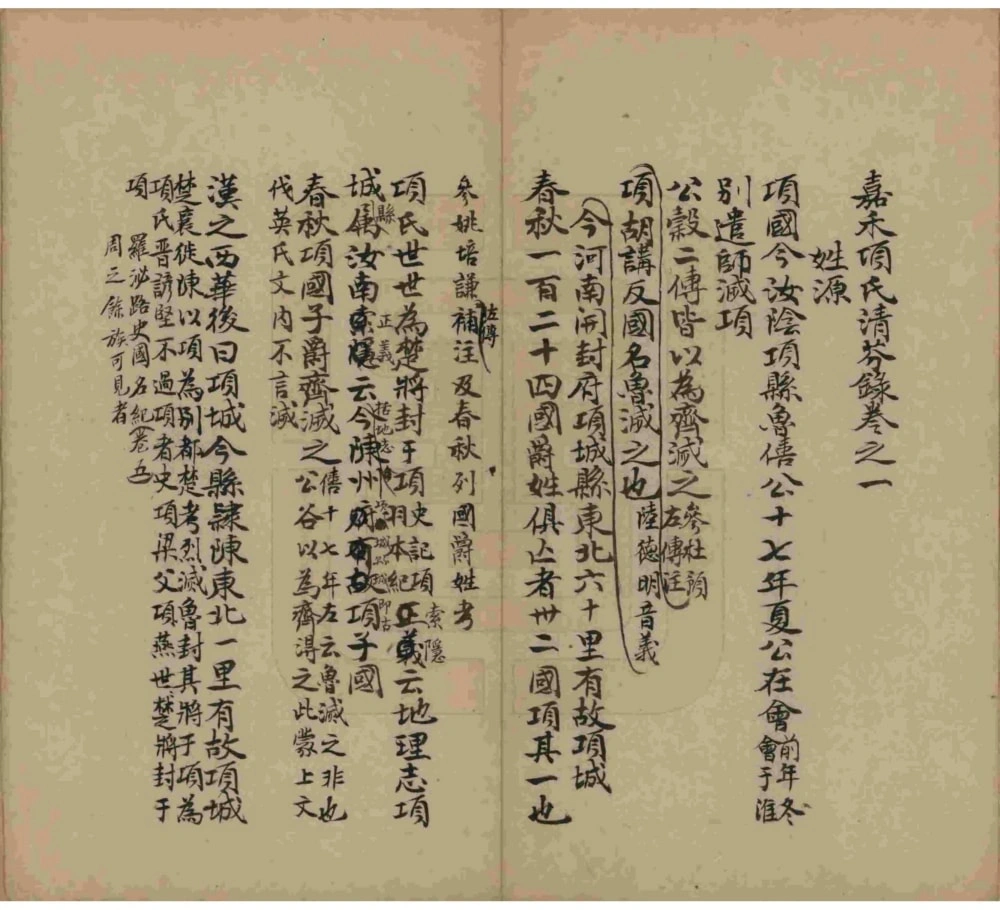 嘉禾項氏清芬錄卷之一
姓源
項國今汝陰項縣魯僖公十七年夏公在會前年冬會于淮
別遣師滅項
公糓二傳皆以為齊滅之參杜預左傳注
項胡講反國名魯滅之也陸德明音義
今河南開封府項城縣東北六十里有故項城
春秋一百二十四國爵姓俱亡者卅二國項其一也
參姚培謙左傳補注及春秋列國爵姓考
項氏世世為楚將封于項史記項羽本紀索隱正義云地理志項
城縣属汝南正義索隱云括地志今陳州項城縣城即古項子國
春秋項國子爵齊滅之僖十七年左云魯滅之非也公谷以為齊淂之此蒙上文
伐英氏文内不言滅
漢之西華後曰項城今縣隷陳東北一里有故項城
楚襄徙陳以項為别都楚考烈滅魯封其將于項為
項氏晋諺堅不過項者史項梁父項燕世楚將封于
項羅泌路史國名紀卷五
周之餘族可見者